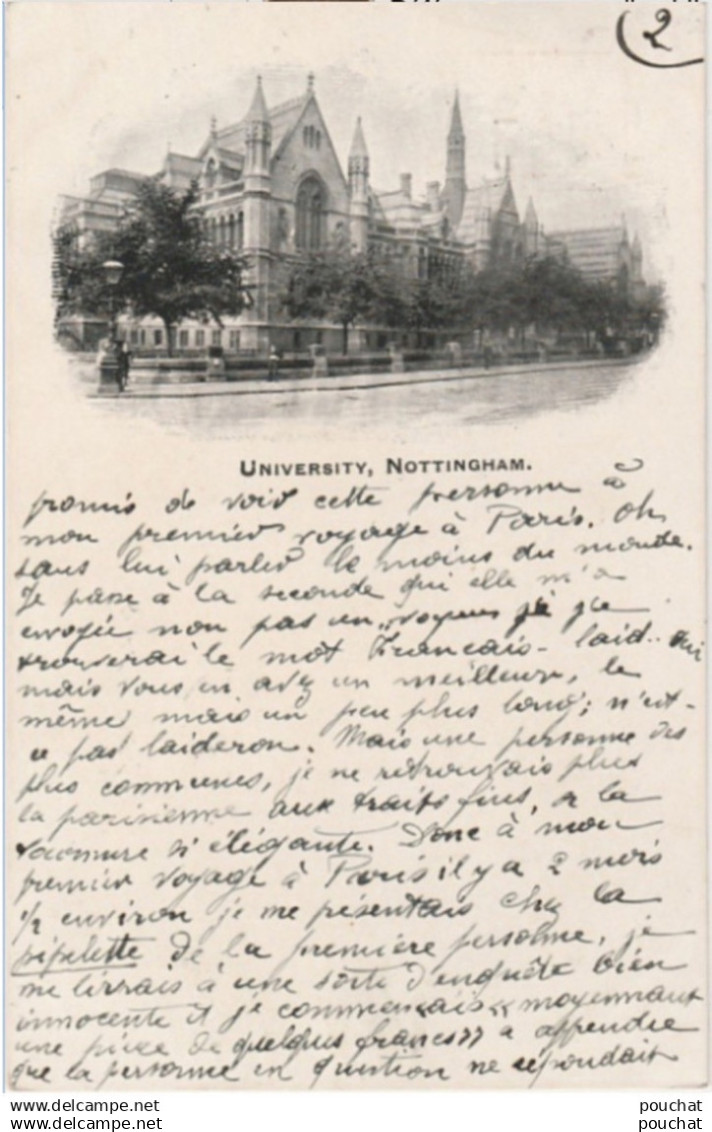 2
UNIVERSITY, NOTTINGHAM.
promis de voir cette personne à
mon premier voyage à Paris. Oh
sans lui parler le moins du monde.
Je passe à la seconde qui elle m'a
envoyée non pas un
trouverai le mot Français - laid..
mais vous en avez un meilleur, le
même mais un peu plus long; n'est-
ce pas laideron. Mais une personne des
plus communes, je ne retrouvais plus
la parisienne aux traits fins, a la
si élégante. Donc à mon
premier voyage à Paris il y a 2 mois
1/2 environ je me présentais chez la
pipelette de la première personne, je
me livrais à une sorte d'enquête bien
innocente et je commençais « moyennant
une pièce de quelques francs » a apprendre
que la personne en question ne répondait
www.delcampe.net
pouchat
www.delcampe.net
pouchat